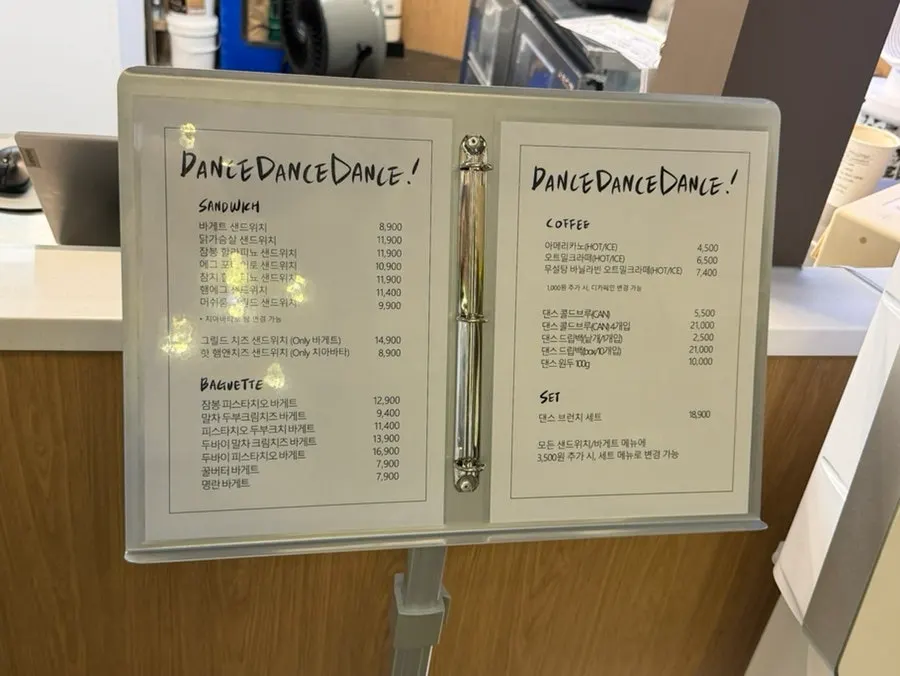 DANCEDANCEDANCE!
SANDWICH
바게트 샌드위치 8,900
닭가슴살 샌드위치 11,900
잠봉 할라피뇨 샌드위치 11,900
에그 샌드위치 10,900
참치 샌드위치 11,900
햄에그 샌드위치 11,400
샌드위치 9,900
• 치아바타로 빵 변경 가능
그릴드 치즈 샌드위치 (Only 바게트) 14,900
핫 햄앤치즈 샌드위치 (Only 치아바타) 8,900
BAGUETTE
잠봉 피스타치오 바게트 12,900
말차 두부크림치즈 바게트 9,400
피스타치오 두부크치 바게트 11,400
두바이 말차 크림치즈 바게트 13,900
두바이 피스타치오 바게트 16,900
꿀버터 바게트 7,900
명란 바게트 7,900
DANCEDANCEDANCE!
COFFEE
아메리카노(HOT/ICE) 4,500
오트밀크라떼(HOT/ICE) 6,500
무설탕 바닐라빈 오트밀크라떼(HOT/ICE) 7,400
1,000원 추가 시, 디카페인 변경 가능
댄스 콜드브루(CAN) 5,500
댄스 콜드브루(CAN) 4개입 21,000
댄스 드립백(낱개/1개입) 2,500
댄스 드립백(box/10개입) 21,000
댄스 원두 100g 10,000
SET
댄스 브런치 세트 18,900
모든 샌드위치/바게트 메뉴에
3,500원 추가 시, 세트 메뉴로 변경 가능